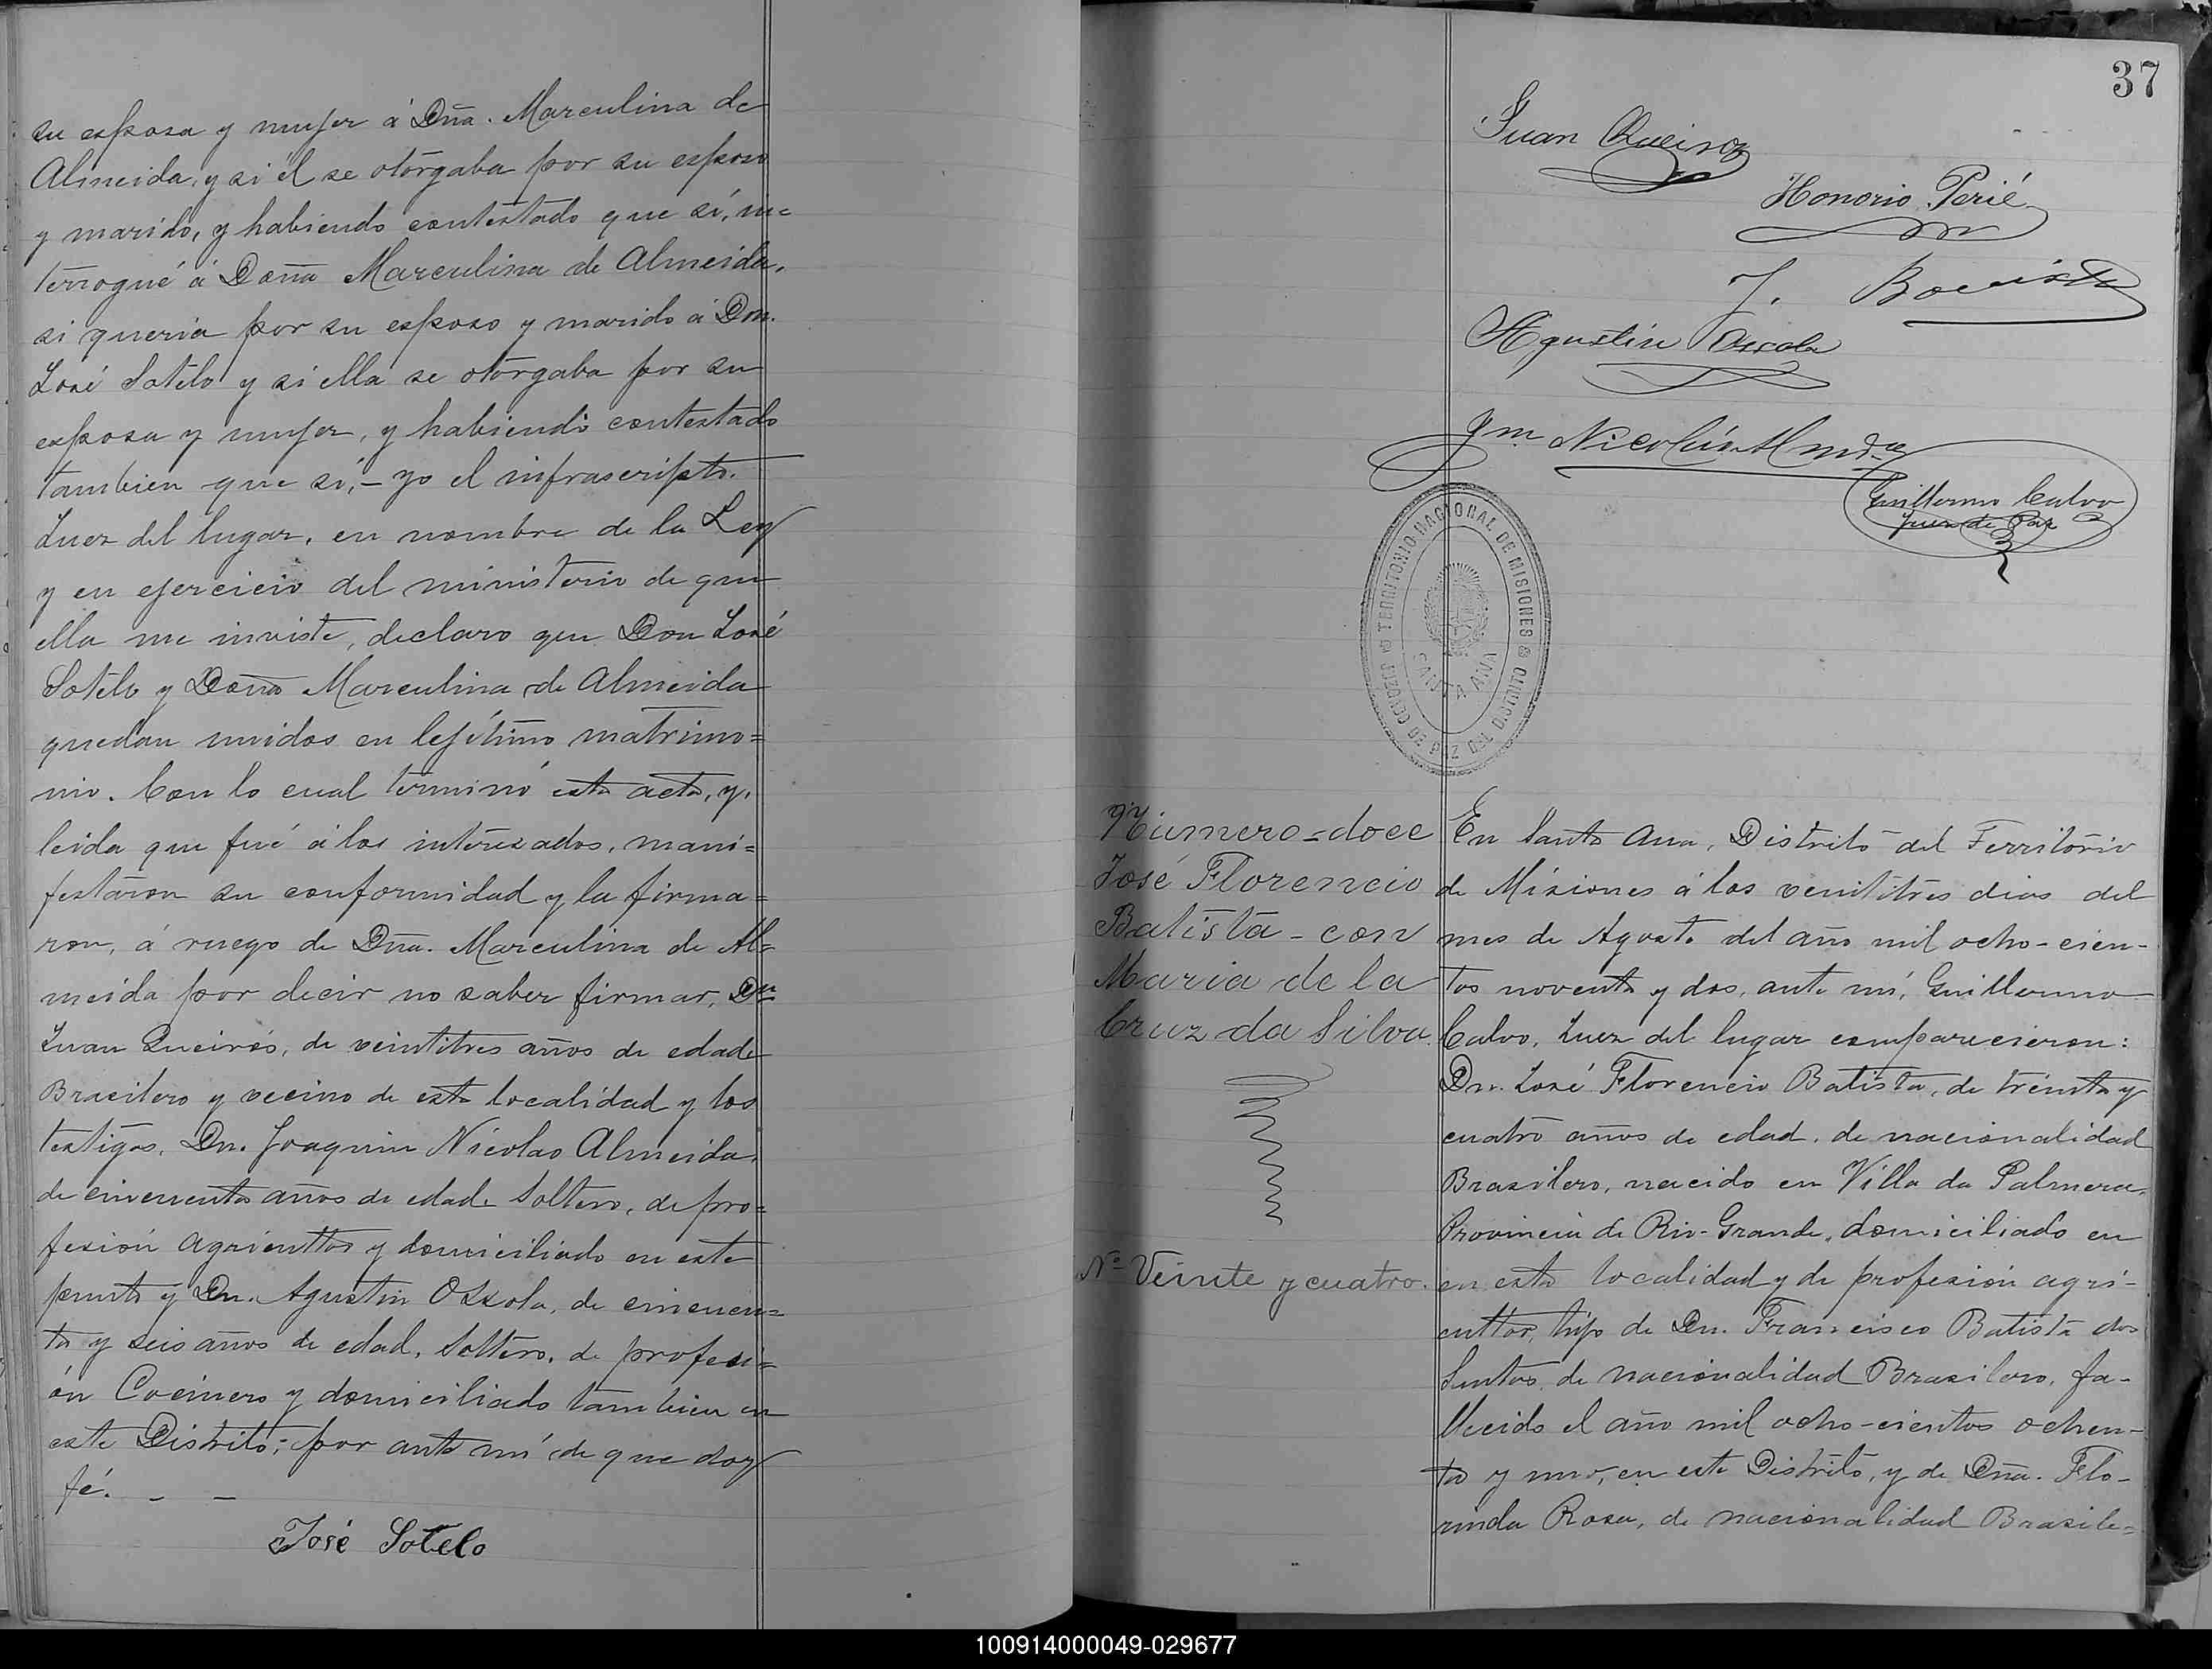 su esposa y mujer á Dña. Marculina de
Almeida, y si él se otorgaba por su esposo
y marido, y habiendo contestado que sí, in=
terrogué á Doña Marculina de Almeida,
si queria por su esposo y marido á Don
José Sotelo y si ella se otorgaba por su
esposa y mujer, y habiendo contestado
tambien que sí,- yo el infrascripto.
Juez del lugar, en nombre de la Ley
y en ejercicio del ministerio de que
ella me inviste, declaro que Don José
Sotelo y Doña Marculina de Almeida
quedan unidos en lejítimo matrimo=
nio. Con lo cual terminó esta acta, y,
leida que fué á los interesados, mani=
festaron su conformidad y la firma=
ron, á ruego de Dña. Marculina de Al=
meida por decir no saber firmar, Dn
Juan Queirós, de veintitres años de edad
Brasilero y vecino de esta localidad y los
testigos, Dn. Joaquin Nicolao Almeida,
de cincuenta años de edad Soltero, de pro=
fesión agricultor y domiciliado en este
punto y Dn. Agustin Ozzola, de cincuen=
ta y seis años de edad, Soltero, de profesi=
ón Cocinero y domiciliado tambien en
este Distrito; por ante mí de que doy
fé. - -
José Sotelo
37
Juan Queiroz
Honorio Perié
J. Bautista
Agustin
Jm. Nicoláu Almda
Guillermo Calvo
Juez de Paz
JUZGADO DE PAZ DEL DISTRITO
TERRITORIO NACIONAL DE MISIONES
SANTA ANA
Número=doce
José Florencio
Batista - con
Maria de la
Cruz da Silva
Nº Veinte y cuatro.
En Santa Ana, Distrito del Territorio
de Misiones á los veintitres dias del
mes de Agosto del año mil ocho-cien-
tos noventa y dos, ante mí, Guillermo
Calvo, Juez del lugar comparecieron:
Dn. José Florencio Batista, de treinta y
cuatro años de edad, de nacionalidad
Brasilero, nacido en Villa da Palmera,
Provincia de Rio-Grande, domiciliado en
en esta localidad y de profesión agri-
cultor, hijo de Dn. Francisco Batista dos
Santos, de nacionalidad Brasilero, fa-
llecido el año mil ocho-cientos ochen-
ta y uno, en este Distrito, y de Dña. Flo-
rinda Rosa, de nacionalidad Brasile=
100914000049-029677